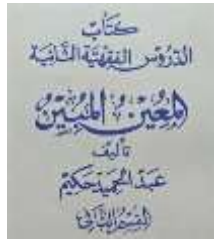 كتاب
الدروس الفقهية الثانية
المعين المبين
تأليف
عبد الحميد حكيم
القسم الثاني